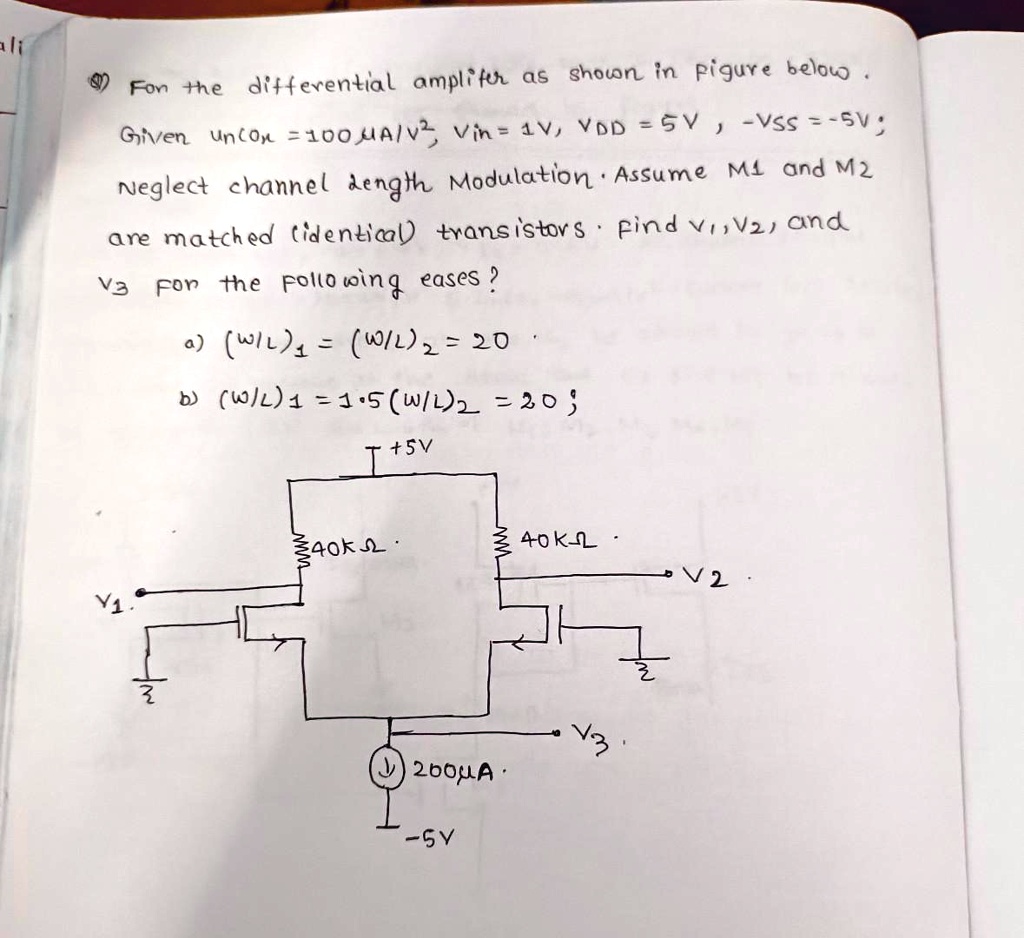 For the differential amplifer as shown in figure below.
Given unCox = 100 μA/V², Vin = 1V, VDD = 5V, -VSS = -5V;
Neglect channel length Modulation. Assume M1 and M2
are matched (identical) transistors. Find V1, V2, and
V3 for the following eases?
a) (W/L)1 = (W/L)2 = 20.
b) (W/L)1 = 1.5(W/L)2 = 20;
+5V
40kΩ.
40kΩ.
V1.
V2.
V3.
200μA.
-5V